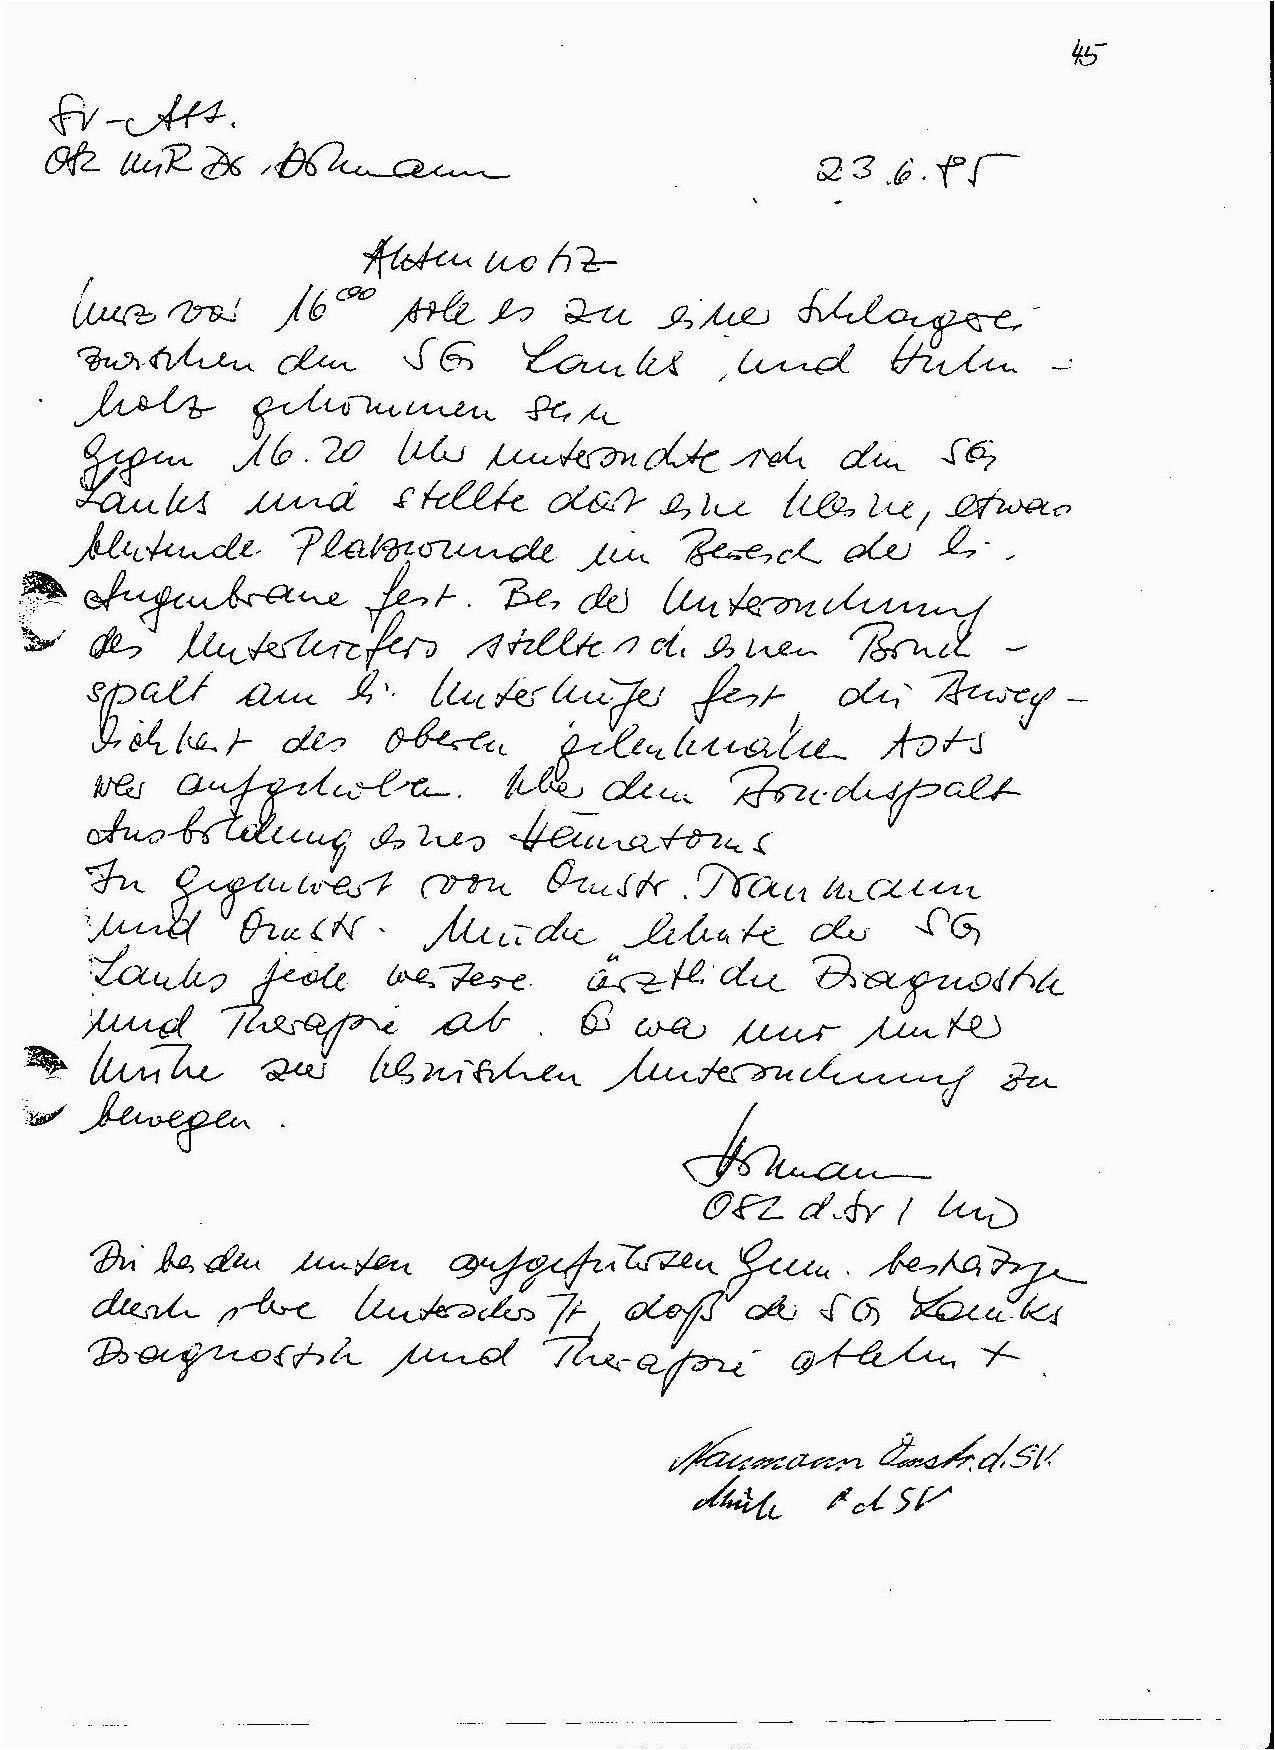 45
SV-Abt.
23.6.85
Aktennotiz
Kurz vor 16°° soll es zu einer Schlägerei
zwischen den SG Lauks und Huhn-
holz gekommen sein
Gegen 16.20 Uhr untersuchte ich den SG
Lauks und stellte dort eine kleine, etwas
blutende Platzwunde im Bereich der li.
Augenbraue fest. Bei der Untersuchung
des Unterkiefers stellte ich einen Bruch-
spalt am li. Unterkiefer fest, die Beweg-
lichkeit des oberen gelenknahen Asts
war aufgehoben. Über dem Bruchspalt
Ausbildung eines Hämatoms
In Gegenwart von Omstr. Naumann
und Omstr. Mücke lehnte der SG
Lauks jede weitere ärztliche Diagnostik
und Therapie ab. Er war nur unter
Mühe zur klinischen Untersuchung zu
bewegen.
d. SV /
Die beiden unten aufgeführten Gen. bestätigen
durch ihre Unterschrift, daß der SG Lauks
Diagnostik und Therapie ablehnt.
Naumann Omstr. d. SV.
d SV